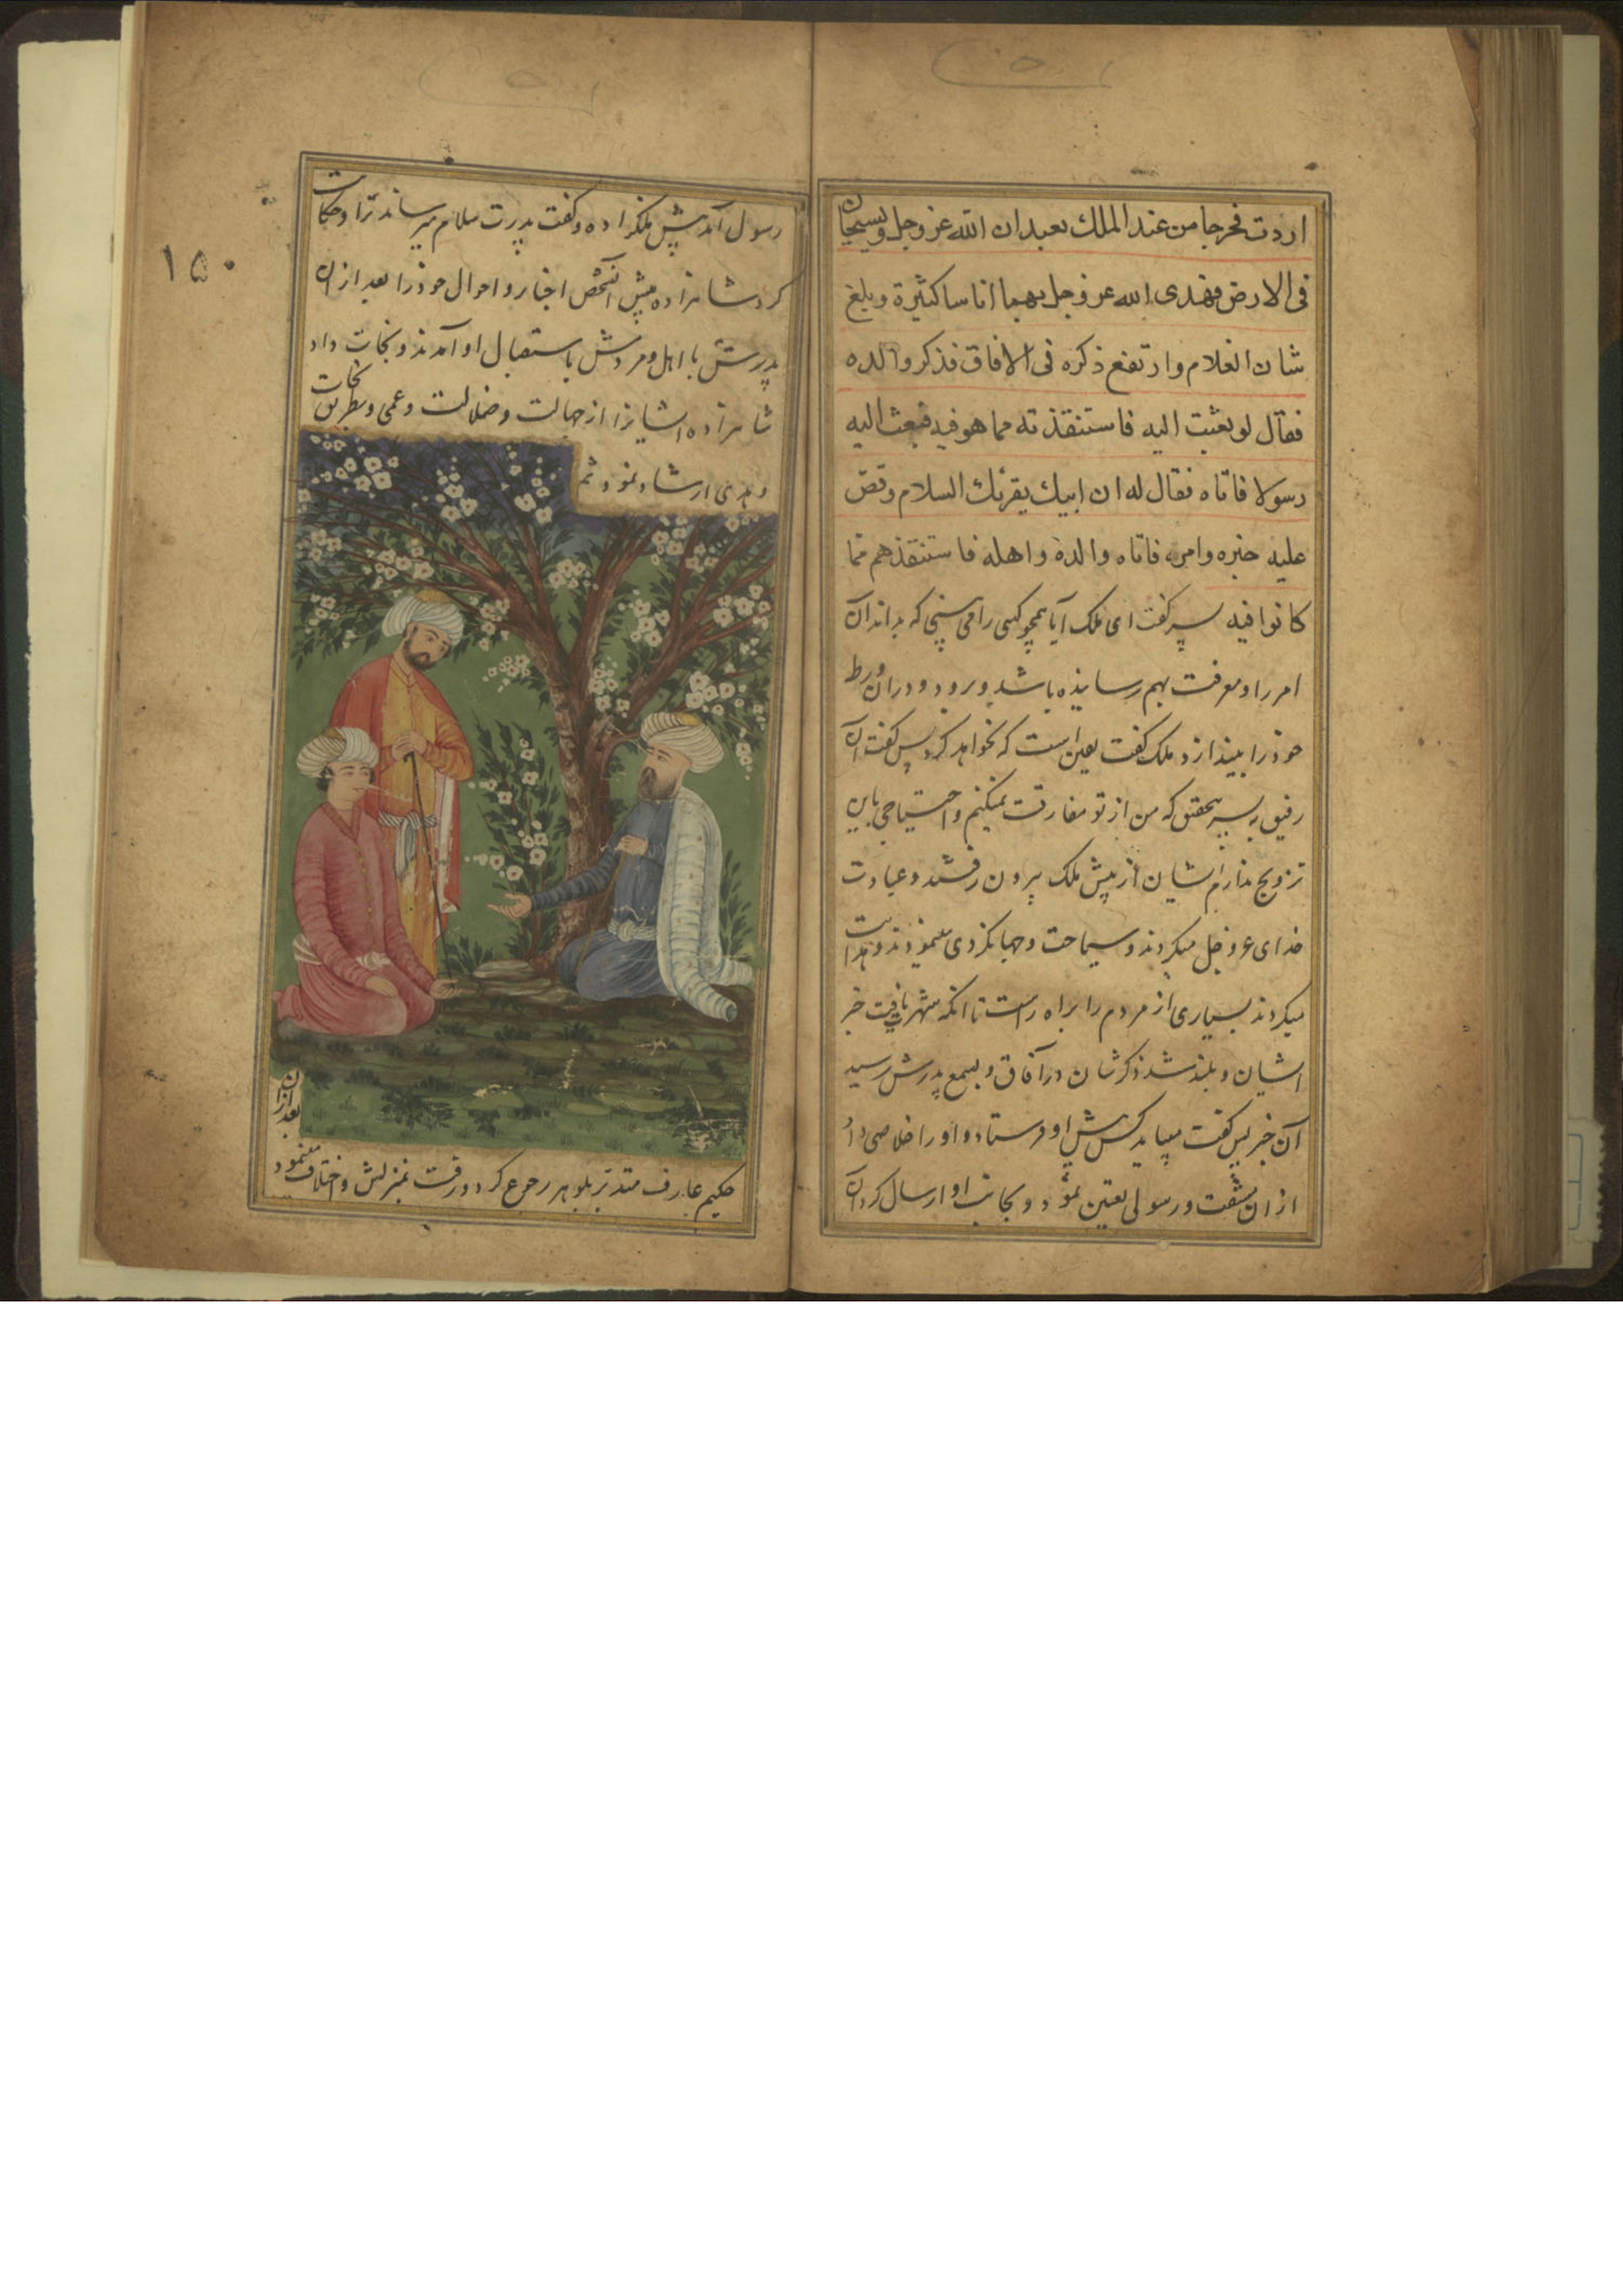 اردت فخرجا من عند الملك يعبدان الله عز وجل ويسيحان
فى الارض فهدى الله عز وجل بهما اناسا كثيرة وبلغ
شان الغلام وارتفع ذكره فى الافاق فذكر والده
فقال لو بعثت اليه فاستنقذته مما هو فيه فبعث اليه
رسولا فاتاه فقال له ان ابيك يقرئك السلام وقص
عليه خبره وامره فاتاه والده واهله فاستنقذهم مما
كانوا فيه پسر كفت اى ملك آيا همچو كسى را مى بينى كه بداند آن
امر را و معرفت بهم رسانيده باشد و برود و در ان ورطه
خوذ را بيندازد ملك كفت يقين است كه نخواهد كرد پس كفت آن
رفيق پسر بتحقيق كه من از تو مفارقت نميكنم و احتياجى باين
تزويج ندارم ايشان از پيش ملك بيرون رفتند و عبادت
خداى عز و جل ميكردند و سياحت و جهانكردى مينمودند و هدايت
ميكردند بسيارى از مردم را براه راست تا انكه شهرت يافت خبر
ايشان و بلند شد ذكر شان در آفاق و بسمع پدرش رسيد
آن خبر پس كفت ميبايد كس پيش او فرستاد و او را خلاصى داد
از ان مشقت و رسولى تعيين نمود و بجانب او ارسال كرد آن
رسول آمد پيش ملكزاده و كفت پدرت سلام ميرساند ترا و حكايت
كرد شاهزاده پيش آنشخص اخبار و احوال خوذ را بعد از ان
پدرش با اهل و مردمش باستقبال او آمدند و نجات داد
شاهزاده ايشانرا از جهالت و ضلالت و عمى و بطريق نجات
و هدى ارشاد نمود ثم
بعد از ان
حكيم عارف متدبر بلوهر رجوع كرد و رفت بمنزلش و اختلاف مينمود
۱۵۰